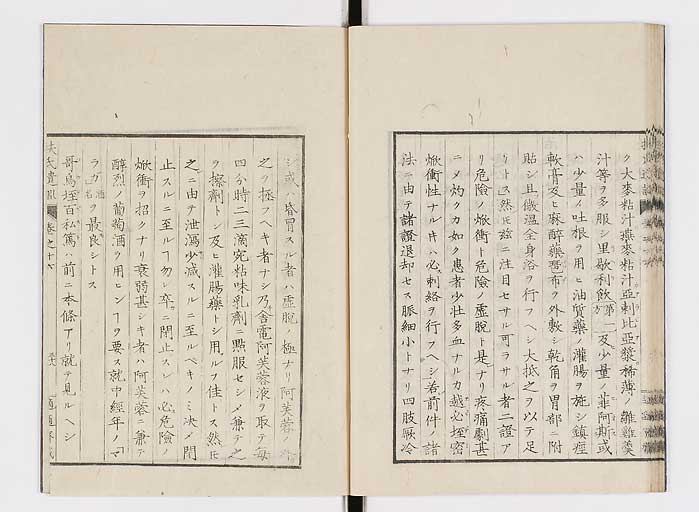 ク大麥粘汁燕麥粘汁亞剌比亞漿稀薄ノ雛雞羹
汁等ヲ多服シ里歇利飲方第一及少量ノ菲阿斯或
ハ少量ノ吐根ヲ用ヒ油質藥ノ灌腸ヲ施シ鎮痙
軟膏及ヒ麻醉藥罨布ヲ外敷シ乾角ヲ胃部ニ附
貼シ且微溫全身浴ヲ行フヘシ大抵之ヲ以テ足
リトス然𪜈茲ニ注目セサル可ラサル者二證ア
リ危險ノ焮衝ト危險ノ虛脫ト是ナリ疼痛劇甚
ニメ灼クカ如ク患者少壯多血ナルカ越必垤密
焮衝性ナル𪜈ハ必ス刺絡ヲ行フヘシ若前件ノ諸
法ニ由テ諸證退却セス脈細小トナリ四肢厥冷
シ或ハ昏冒スル者ハ虛脫ノ極ナリ阿芙蓉ノ外
之ヲ拯フヘキ者ナシ乃舍電阿芙蓉液ヲ取テ每
四分時二三滴宛粘味乳劑ニ點服セシメ兼テ之
ヲ擦劑トシ及ヒ灌腸藥トシ用ルヲ佳トス然𪜈
之ニ由テ泄瀉少減スルニ至ルヘキノミ决メ閉
止スルニ至ルヿ勿レ卒ニ閉止スレハ必危險ノ
焮衝ヲ招クナリ衰弱甚シキ者ハ阿芙蓉ニ兼テ
醇烈ノ葡萄酒ヲ用ヒンヿヲ要ス就中經年ノ「マ
ラガ」酒名ヲ最良トス
哥烏垤百私篤ハ前ニ本條アリ就テ見ルヘシ
扶氏遺訓 卷之十六